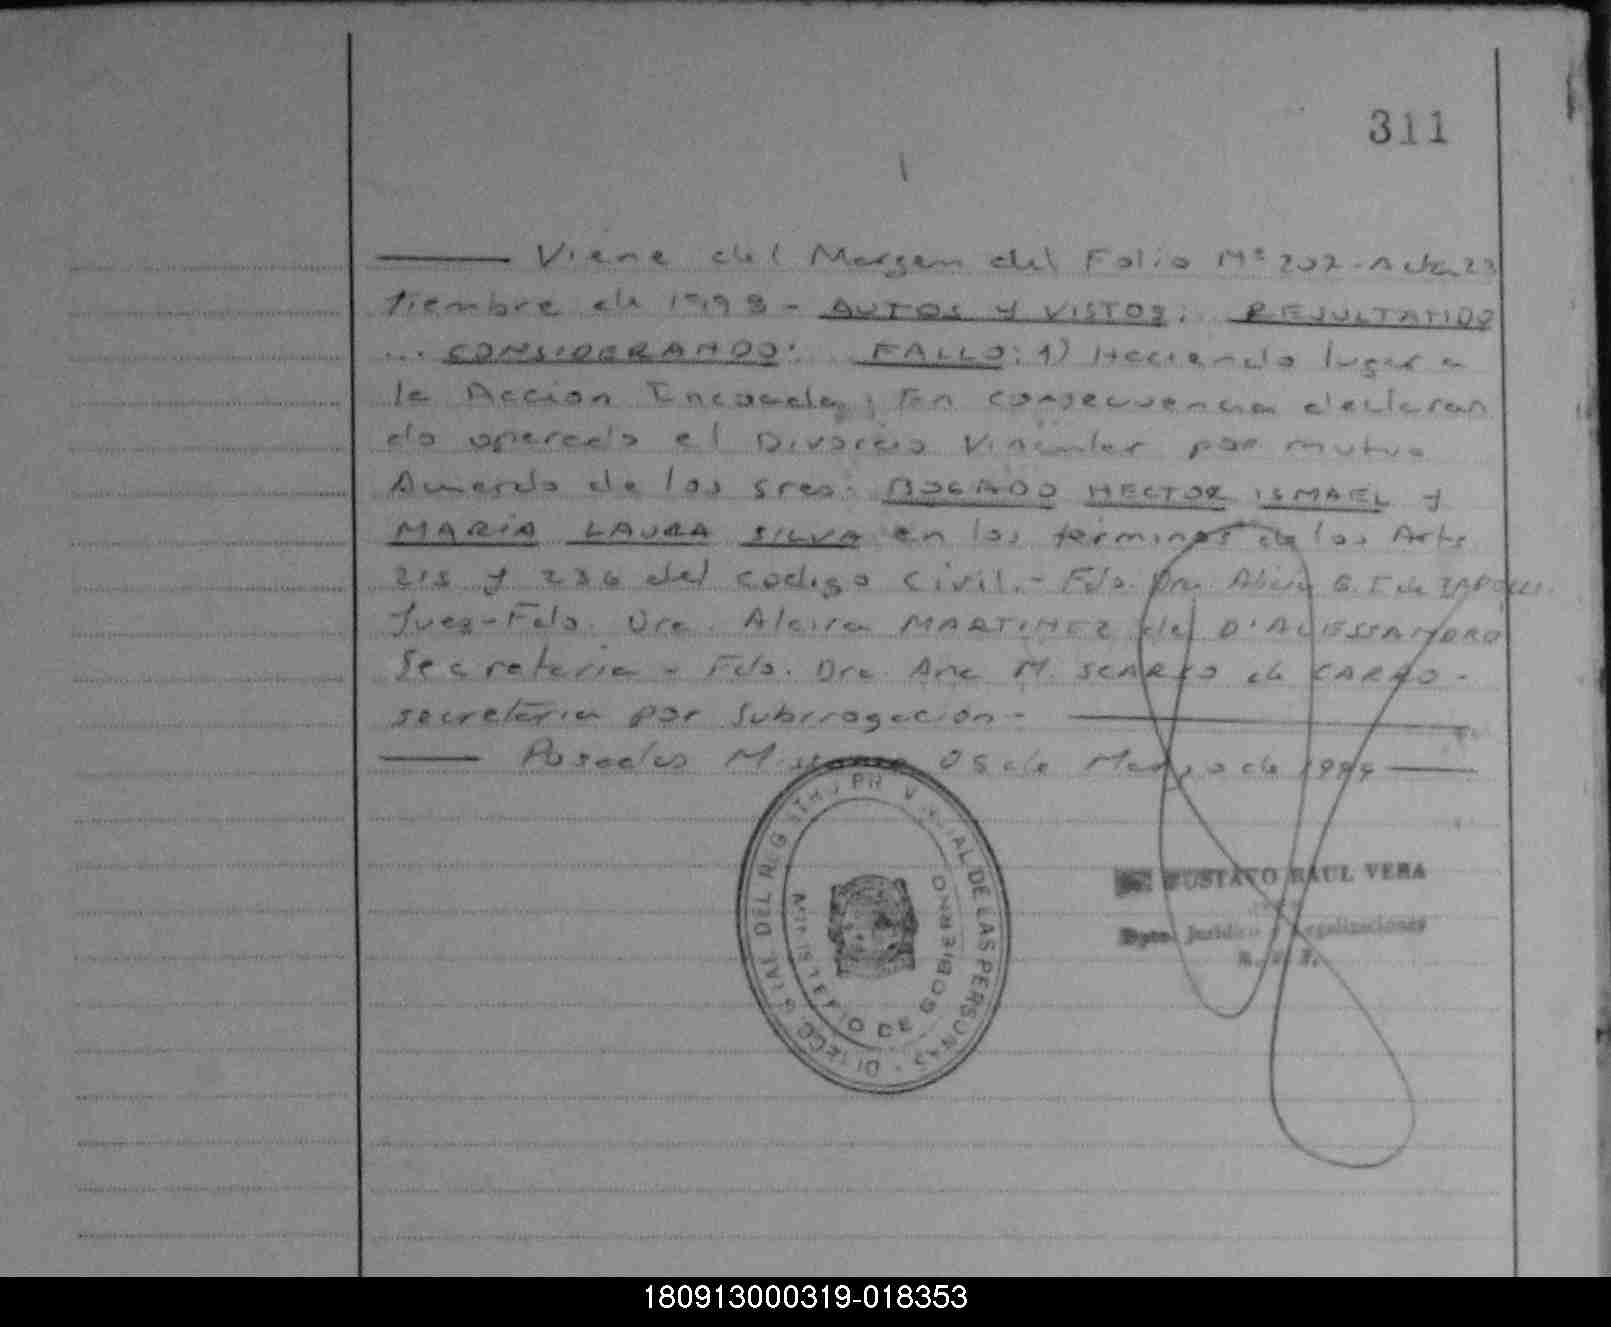 311
Viene del Margen del Folio Nº 202 - Acta 23
tiembre de 1998 - AUTOS Y VISTOS: RESULTANDO
... CONSIDERANDO: FALLO: 1) Haciendo lugar a
la Accion Incoada; En consecuencia declaran
do operado el Divorcio Vincular por mutuo
Acuerdo de los sres: BOGADO HECTOR ISMAEL y
MARIA LAURA SILVA en los terminos de los Arts
215 y 236 del codigo Civil. - Fdo. Dra. G. T de
Juez - Fdo. Dra. Alcira MARTINEZ de D'ALESSANDRO
Secretaria - Fdo. Dra. Ana M. de CARRO -
secretaria por Subrrogacion -
Posadas Misiones 05 de de 1999
DIRECC. GRAL DEL REGISTRO PROVINCIAL DE LAS PERSONAS
MINISTERIO DE GOBIERNO
GUSTAVO RAUL VERA
Dpto. Juridico y Legalizaciones
180913000319-018353